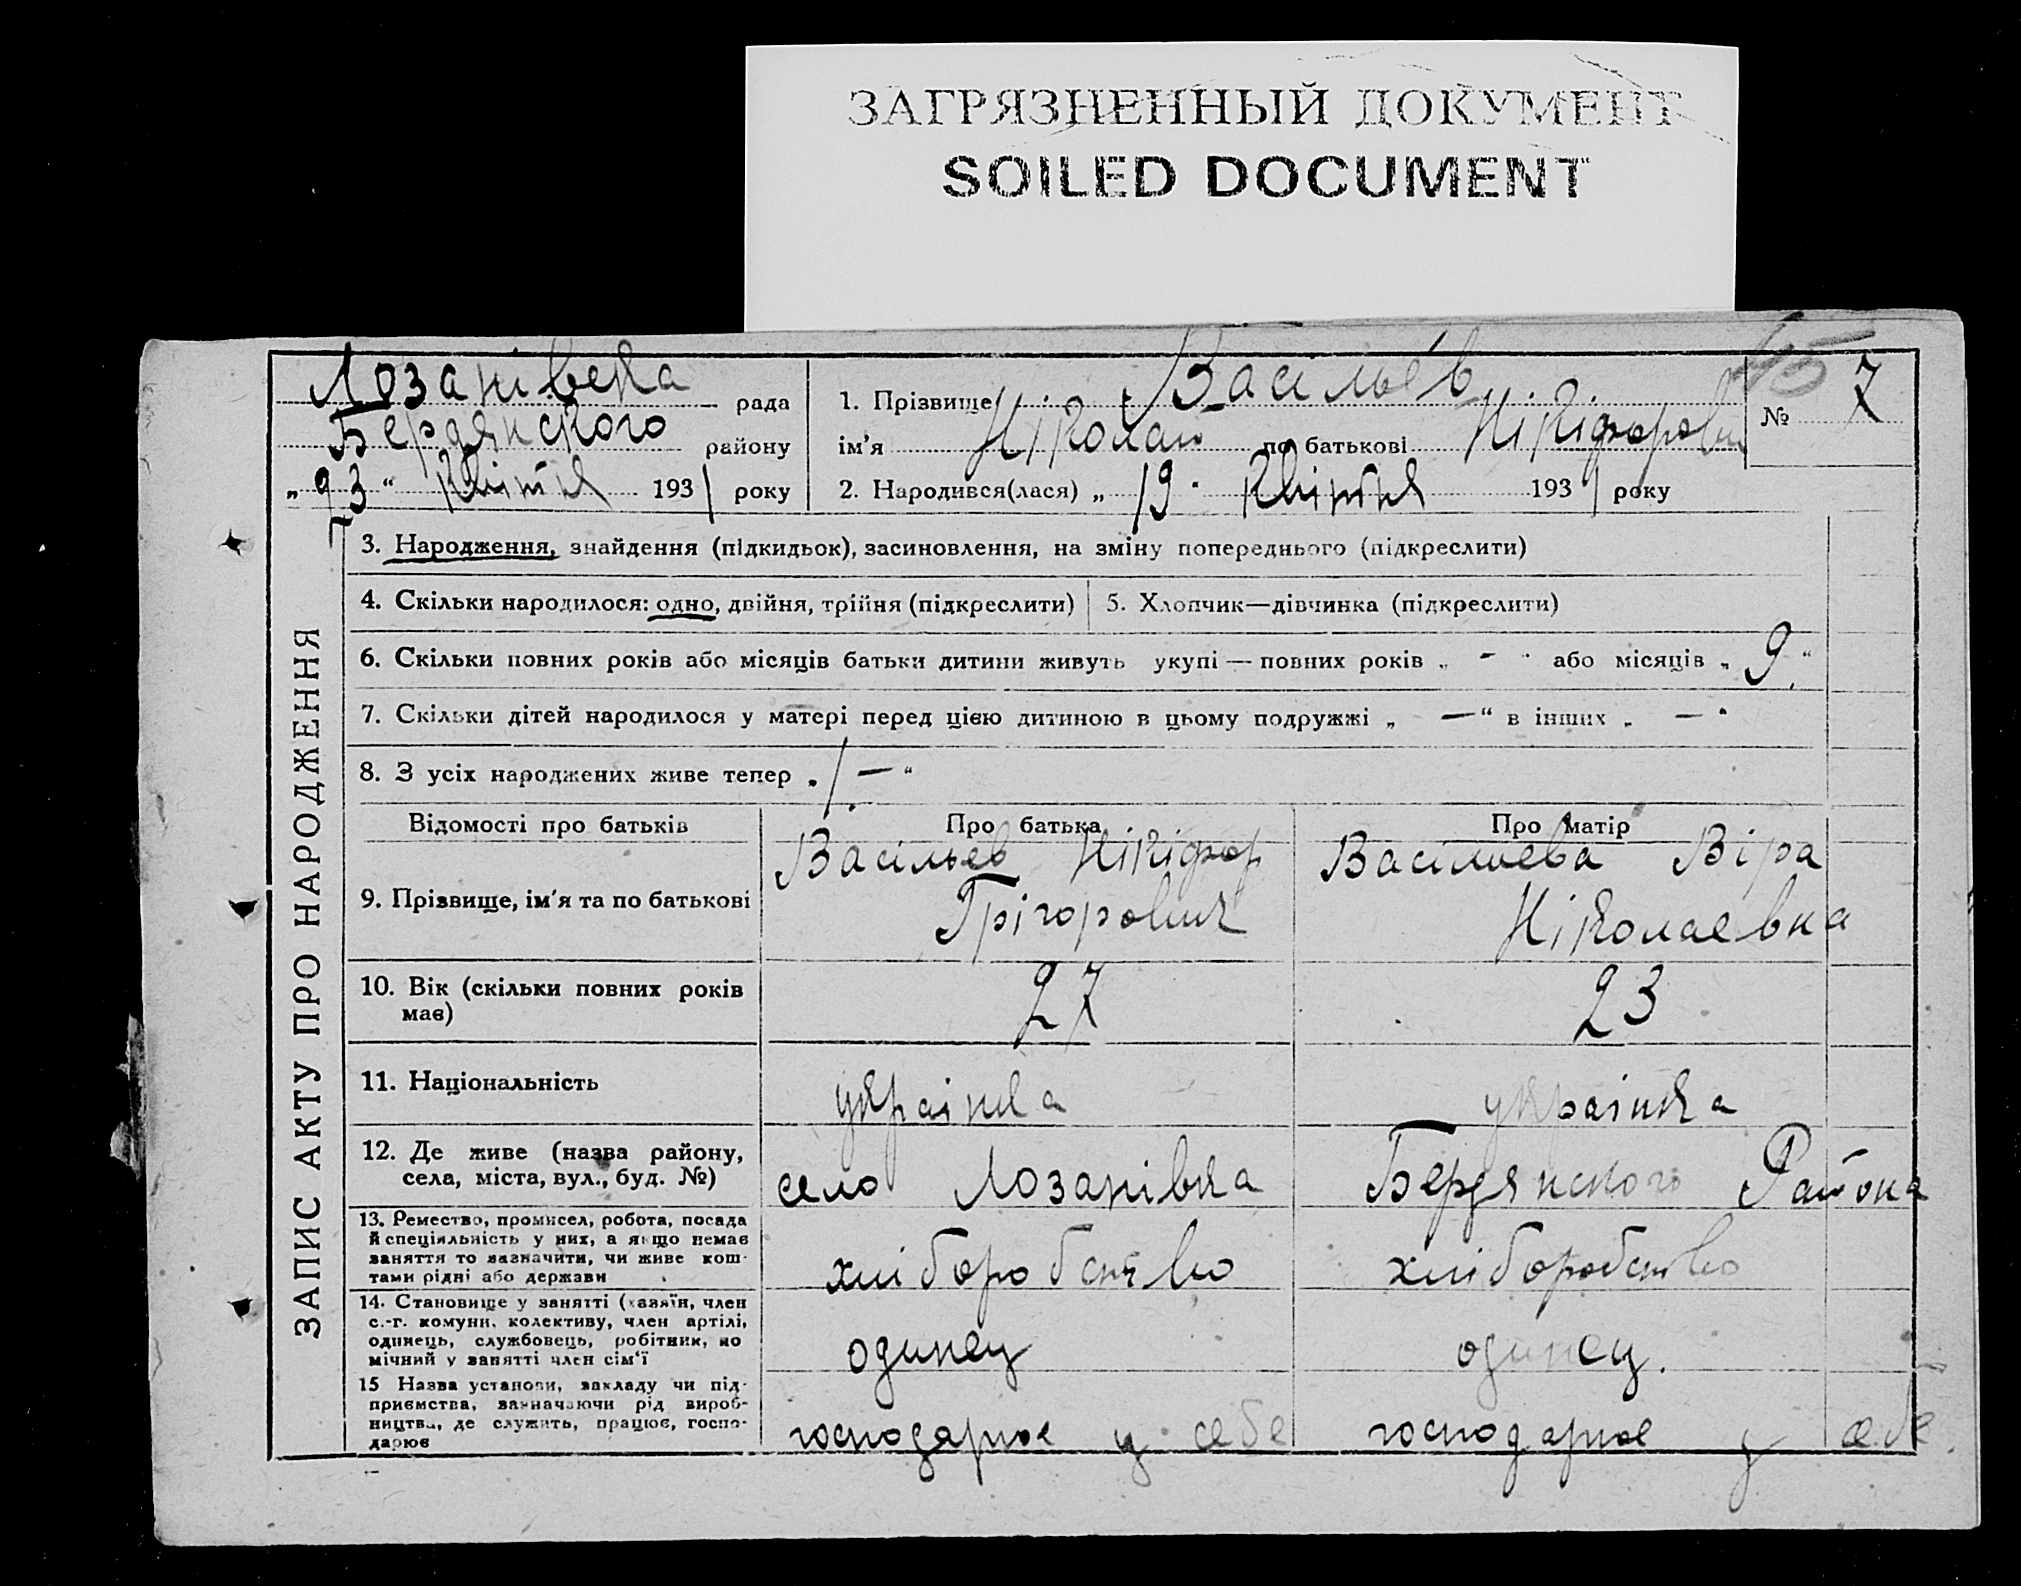 ЗАГРЯЗНЕННЫЙ ДОКУМЕНТ
SOILED DOCUMENT
Лозанівска рада
Бердянского району
„23“ Квітня 1931 року
1. Прізвище Васільєв
ім’я Ніколай по батькові Нікіфорович
2. Народився(лася) „19“ Квітня 1931 року
45
№ 7
ЗАПИС АКТУ ПРО НАРОДЖЕННЯ
3. Народження, знайдення (підкидьок), засиновлення, на зміну попереднього (підкреслити)
4. Скільки народилося: одно, двійня, трійня (підкреслити)
5. Хлопчик—дівчинка (підкреслити)
6. Скільки повних років або місяців батьки дитини живуть укупі — повних років „ - “ або місяців „ 9 “
7. Скільки дітей народилося у матері перед цією дитиною в цьому подружжі „ — “ в інших „ — “
8. З усіх народжених живе тепер „ 1 — “
Відомості про батьків
Про батька
Про матір
9. Прізвище, ім’я та по батькові
Васільев Нікіфор
Грігорович
Васілиева Віра
Ніколаевна
10. Вік (скільки повних років
має)
27
23
11. Національність
україпка
українка
12. Де живе (назва району,
села, міста, вул., буд. №)
село Лозанівка
Бердянского Района
13. Ремество, промисел, робота, посада
й спеціяльність у них, а якщо немає
заняття то зазначити, чи живе кош-
тами рідні або держави
хліборобство
хліборобство
14. Становище у занятті (хазяїн, член
с.-г. комуни, колективу, член артілі,
одинець, службовець, робітник, по
мічний у занятті член сім’ї
одинец
одинец.
15 Назва установи, закладу чи під-
приємства, зазначаючи рід вироб-
ництва, де служить, працює, госпо-
дарює
господарює у себе
господарює у себе.